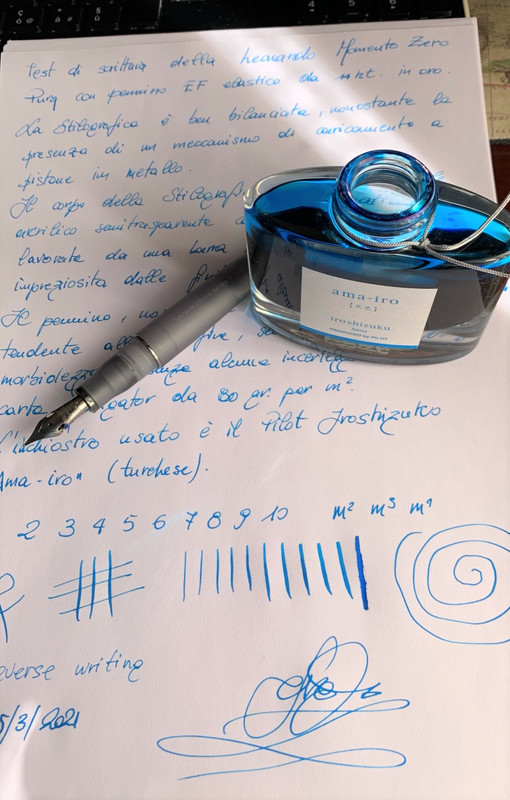 Test di scrittura della Leonardo Momento Zero
Pura con pennino EF elastico da 14 kt. in oro.
La Stilografica è ben bilanciata, nonostante la
presenza di un meccanismo di caricamento a
pistone in metallo.
Il corpo della Stilografi
acrilico semitrasparente
lavorate da una barra
impreziosita dalle fini
Il pennino, no
tendente all fine, se
morbidezza senza alcuna incertez
carta gator da 80 gr. per m².
L'inchiostro usato è il Pilot Iroshizuku
Ama-iro" (turchese).
2 3 4 5 6 7 8 9 10 m² m³ m⁴
everse writing
5/3/2021
ama-iro
iroshizuku
50ml
PRODUCED by PILOT